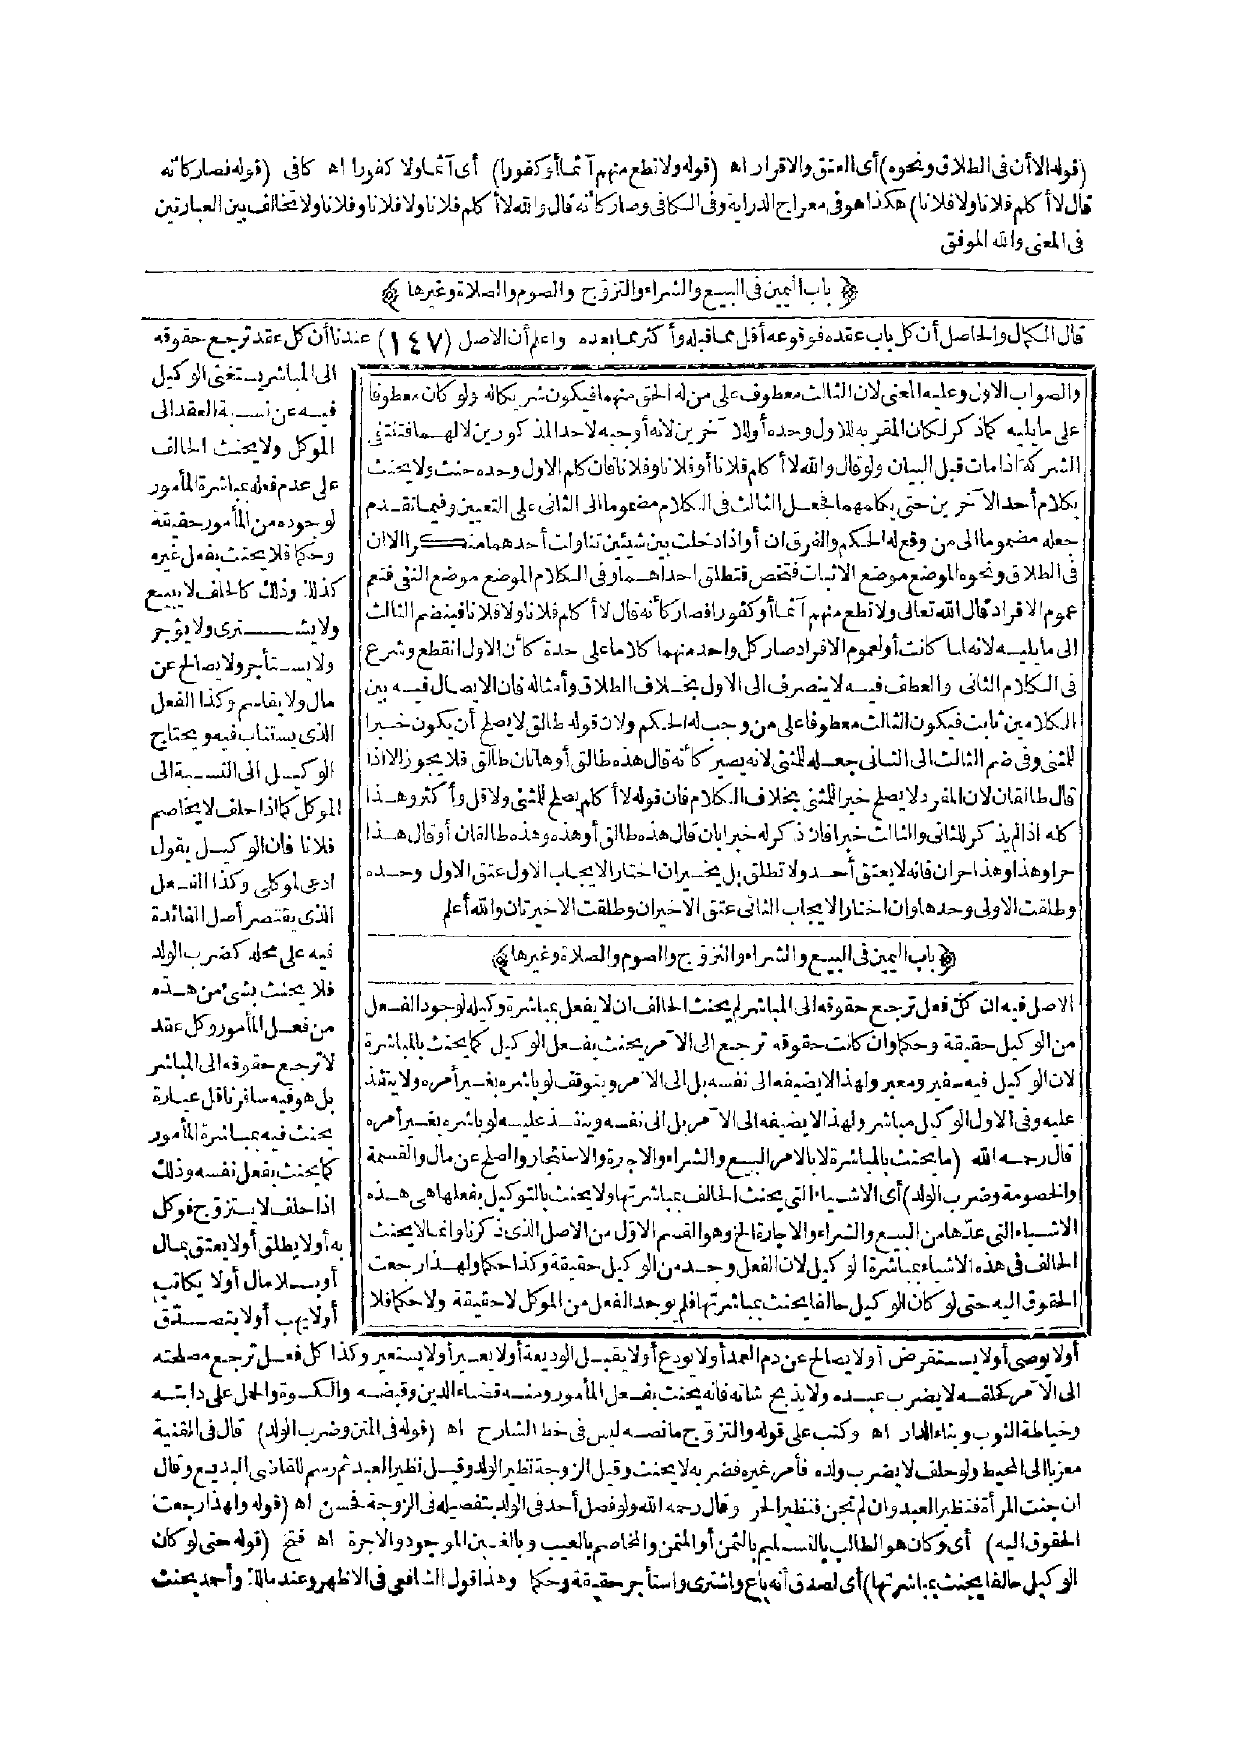 (قوله الا أن فى الطلاق ونحوه) أى العتق والاقرار اه (قوله ولا تطع منهم آثما أو كفورا) أى آثما ولا كفورا اه كافى (قوله فصار كأنه
قال لا أكلم فلانا ولا فلانا) هكذا هو فى معراج الدراية وفى الكافى وصار كأنه قال والله لا أكلم فلانا ولا فلانا وفلانا ولا تخالف بين العبارتين
فى المعنى والله الموفق
﴿ باب اليمين فى البيع والشراء والتزوّج والصوم والصلاة وغيرها ﴾
قال الكمال والحاصل أن كل باب عقده فوقوعه أقل مما قبله وأكثر مما بعده واعلم أن الاصل (١٤٧) عندنا أن كل عقد ترجع حقوقه
الى المباشر يستغنى الوكيل
فيه عن نسبة العقد الى
الموكل ولا يحنث الحالف
على عدم فعله بمباشرة المأمور
لوجوده من المأمور حقيقة
وحكما فلا يحنث بفعل غيره
كذلك وذلك كالحلف لا يبيع
ولا يشترى ولا يؤجر
ولا يستأجر ولا يصالح عن
مال ولا يقاسم وكذا الفعل
الذى يستناب فيه ويحتاج
الوكيل الى النسبة الى
الموكل كما اذا حلف لا يخاصم
فلانا فان الوكيل يقول
ادعى لموكلى وكذا الفعل
الذى يقتصر أصل الفائدة
فيه على محله كضرب الولد
فلا يحنث بشئ من هذه
من فعل المأمور وكل عقد
لا ترجع حقوقه الى المباشر
بل هو فيه سافر ناقل عبارة
يحنث فيه بمباشرة المأمور
كما يحنث بفعل نفسه وذلك
اذا حلف لا يتزوّج فوكل
به أو لا يطلق أو لا يعتق بمال
أو بلا مال أو لا يكاتب
أو لا يهب أو لا يتصدّق
والصواب الاول وعليه المعنى لان الثالث معطوف على من له الحق منهما فيكون شريكا له ولو كان معطوفا
على ما يليه كما ذكر لكان المقر به للاول وحده أو للآخرين لانه أوجبه لاحد المذكورين لا لهما فتنتفى
الشركة اذا مات قبل البيان ولو قال والله لا أكلم فلانا أو فلانا وفلانا فان كلم الاول وحده حنث ولا يحنث
بكلام أحد الآخرين حتى يكلمهما فجعل الثالث فى الكلام مضموما الى الثانى على التعيين وفيما تقدم
جعله مضموما الى من وقع له الحكم والفرق ان أو اذا دخلت بين شيئين تناولت أحدهما منكرا الا ان
فى الطلاق ونحوه الموضع موضع الاثبات فتخص فتطلق احداهما وفى الكلام الموضع موضع النفى فتعم
عموم الافراد قال الله تعالى ولا تطع منهم آثما أو كفورا فصار كأنه قال لا أكلم فلانا ولا فلانا فينضم الثالث
الى ما يليه لانه لما كانت أو لعموم الافراد صار كل واحد منهما كلاما على حدة كأن الاول انقطع وشرع
فى الكلام الثانى والعطف فيه لا ينصرف الى الاول بخلاف الطلاق وأمثاله فان الايصال فيه بين
الكلامين ثابت فيكون الثالث معطوفا على من وجب له الحكم ولان قوله طالق لا يصلح أن يكون خبرا
للمثنى وفى ضم الثالث الى الثانى جعله للمثنى لانه يصير كأنه قال هذه طالق أو هاتان طالق فلا يجوز الا اذا
قال طالقان لان المفرد لا يصلح خبرا للمثنى بخلاف الكلام فان قوله لا أكلم يصلح للمثنى ولاقل وأكثر وهذا
كله اذا لم يذكر للثانى والثالث خبرا فان ذكر له خبرا بان قال هذه طالق أو هذه وهذه طالقان أو قال هذا
حر أو هذا وهذا حران فانه لا يعتق أحد ولا تطلق بل يخير ان اختار الايجاب الاول عتق الاول وحده
وطلقت الاولى وحدها وان اختار الايجاب الثانى عتق الاخيران وطلقت الاخيرتان والله أعلم
﴿ باب اليمين فى البيع والشراء والتزوّج والصوم والصلاة وغيرها ﴾
الاصل فيه ان كل فعل ترجع حقوقه الى المباشر لم يحنث الحالف ان لا يفعل بمباشرة وكيله لوجود الفعل
من الوكيل حقيقة وحكما وان كانت حقوقه ترجع الى الآمر يحنث بفعل الوكيل كما يحنث بالمباشرة
لان الوكيل فيه سفير ومعبر ولهذا لا يضيفه الى نفسه بل الى الآمر ويتوقف لو باشره بغير أمره ولا ينفذ
عليه وفى الاول الوكيل مباشر ولهذا لا يضيفه الى الآمر بل الى نفسه وينفذ عليه لو باشره بغير أمره
قال رحمه الله (ما يحنث بالمباشرة لا بالامر البيع والشراء والاجرة والاستئجار والصلح عن مال والقسمة
والخصومة وضرب الولد) أى الاشياء التى يحنث الحالف بمباشرتها ولا يحنث بالتوكيل بفعلها هى هذه
الاشياء التى عدّها من البيع والشراء والاجارة الخ وهو القسم الاوّل من الاصل الذى ذكرنا وانما لا يحنث
الحالف فى هذه الاشياء بمباشرة الوكيل لان الفعل وجد من الوكيل حقيقة وكذا حكما ولهذا رجعت
الحقوق اليه حتى لو كان الوكيل حالفا يحنث بمباشرتها فلم يوجد الفعل من الموكل لا حقيقة ولا حكما فلا
أو لا يوصى أو لا يستقرض أو لا يصالح عن دم العمد أو لا يودع أو لا يقبل الوديعة أو لا يعير أو لا يستعير وكذا كل فعل ترجع مصلحته
الى الآمر كحلفه لا يضرب عبده ولا يذبح شاته فانه يحنث بفعل المأمور ومنه قضاء الدين وقبضه والكسوة والحمل على دابته
وخياطة الثوب وبناء الدار اه وكتب على قوله والتزوّج ما نصه ليس فى خط الشارح اه (قوله فى المتن وضرب الولد) قال فى القنية
معزيا الى المحيط ولو حلف لا يضرب ولده فأمر غيره فضربه لا يحنث وقيل الزوجة نظير الولد وقيل نظير العبد ثم رسم للقاضى البديع وقال
ان جنت المرأة فنظير العبد وان لم تجن فنظير الحر وقال رحمه الله ولو فصل أحد فى الولد بتفصيله فى الزوجة فحسن اه (قوله ولهذا رجعت
الحقوق اليه) أى وكان هو الطالب بالتسليم بالثمن أو المثمن والمخاصم بالعيب وبالغبن الموجود والاجرة اه فتح (قوله حتى لو كان
الوكيل حالفا يحنث بمباشرتها) أى لصدق أنه باع واشترى واستأجر حقيقة وحكما وهذا قول الشافعى فى الاظهر وعند مالك وأحمد يحنث